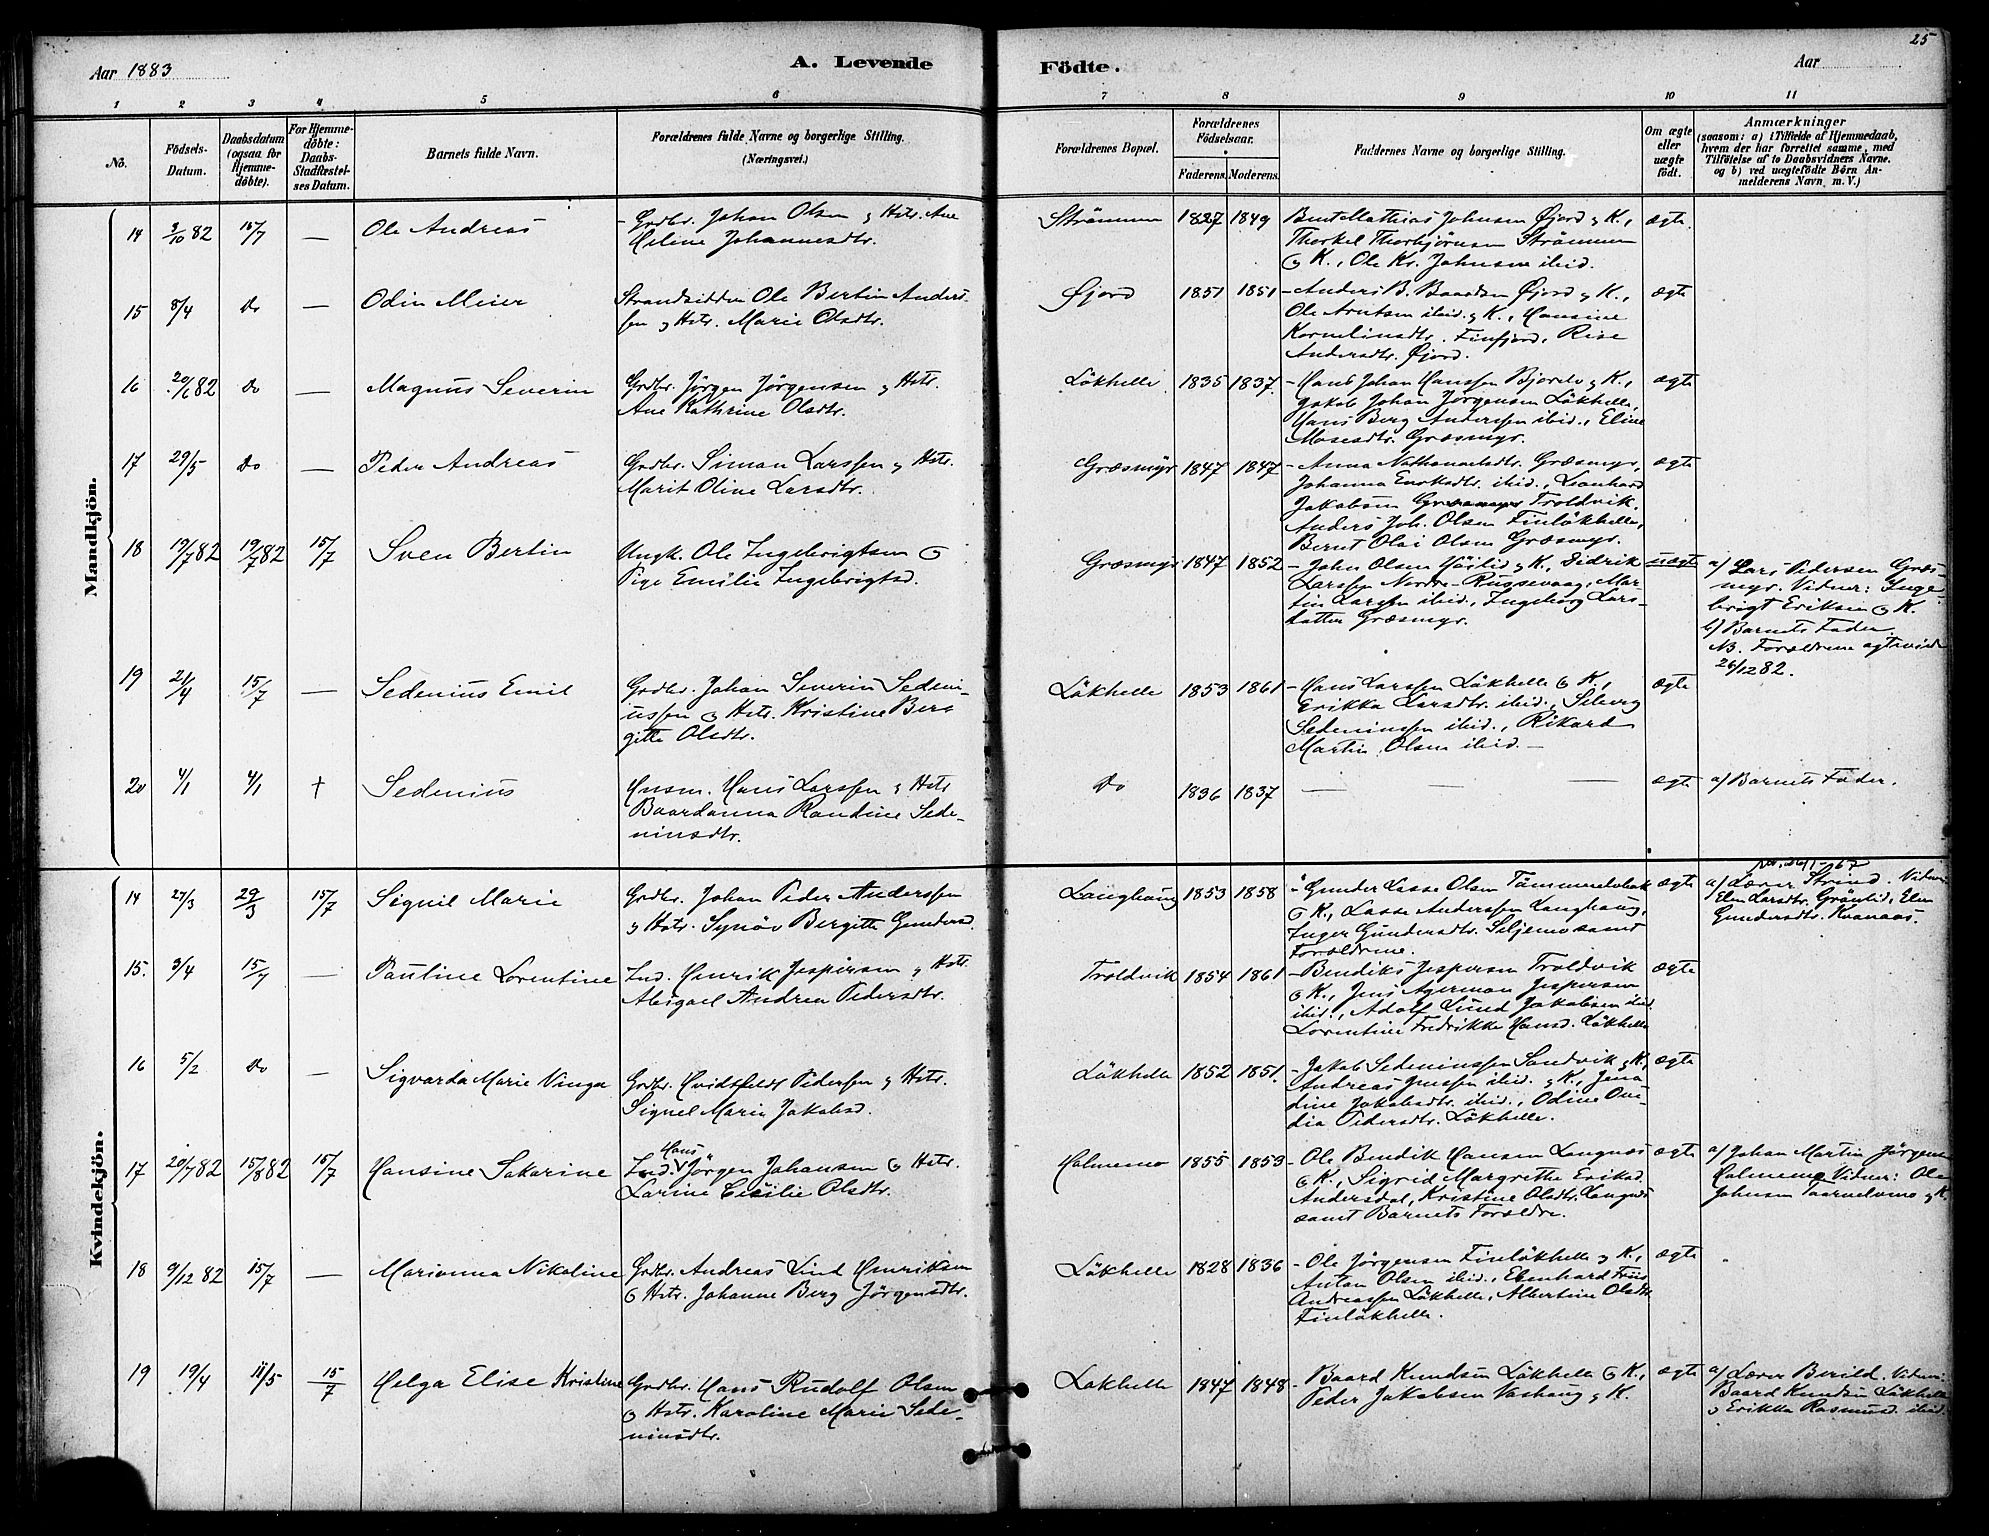 25
Aar 1883
A. Levende Födte.
Aar
1 2 3 4 5 6 7 8 9 10 11
No.
Födsels-Datum.
Daabsdatum (ogsaa for Hjemme-döbte).
For Hjemme-döbte: Daabs-Stadfæstel-ses Datum.
Barnets fulde Navn.
Forældrenes fulde Navne og borgerlige Stilling.
(Næringsvei.)
Forældrenes Bopæl.
Forældrenes Födselsaar.
Faderens. Moderens.
Faddernes Navne og borgerlige Stilling.
Om ægte eller uægte födt.
Anmærkninger
(saasom: a) i Tilfælde af Hjemmedaab,
hvem der har forrettet samme, med
Tilföielse af to Daabsvidners Navne.
og b) ved uægtefödte Börn An-
melderens Navn, m. V.)
Mandkjön.
14 3/10 82 15/7 — Ole Andreas
Grdbr. Johan Olsen og Hstr. Ane
Heline Johannesdtr.
Strömmen 1827 1849
Bent Mathias Johnsen Øjord og K.,
Thorkel Thorbjörnsen Strömmen
og K., Ole Kr. Johnsen ibid.
ægte.
15 8/4 Do — Odin Meier
Strandsidder Ole Bertin Anders-
sen og Hstr. Marie Olsdtr.
Øjord 1851 1851
Anders B. Baardsen Øjord og K.,
Ole Arntsen ibid. og K., Hansine
Korneliusdtr. Finfjord, Rise
Andersdtr. Øjord.
ægte
16 20/6 82 Do — Magnus Severin
Grdbr. Jörgen Jörgensen og Hstr.
Ane Kathrine Olsdtr.
Lökhelle 1835 1837.
Hans Johan Hanssen Bjorelv og K.,
Jakob Johan Jörgensen Lökhelle,
Hans Berg Anderssen ibid., Eline
Mosesdtr. Græsmyr.
ægte
17 29/5 Do — Peder Andreas
Grdbr. Simon Larssen og Hstr.
Marit Oline Larsdtr.
Græsmyr 1847 1847
Anna Nathanaelsdtr. Græsmyr,
Johanna Enoksdtr. ibid., Leonhard
Jakobsen Troldvik.
Anders Joh. Olsen Finlökhelle,
Bernt Olai Olsen Græsmyr.
ægte
18 19/7 82 19/7 82 15/7 Sven Bertin
Ungk. Ole Ingebrigtsen og
Pige Emilie Ingebrigtsd.
Græsmyr 1847 1852
John Olsen og K., Didrik
Larssen Nordre-Russevaag, Mar-
tin Larssen ibid., Ingeborg Lars-
datter Græsmyr.
uægte
a/ Lars Pedersen Græs-
myr. Vidner: Inge-
brigt Eriksen og K.
b/ Barnets Fader.
NB. Forældrene ægteviede
26/12 82.
19 21/4 15/7 — Sedenius Emil
Grdbr. Johan Severin Sedeni-
ussen og Hstr. Kristine Ber-
gitte Olsdtr.
Lökhelle 1853 1861
Hans Larssen Lökhelle og K.,
Erikka Larsdtr. ibid., Seberg
Sedeniussen ibid., Rikard
Martin Olsen ibid. —
ægte
20 4/1 4/1 † Sedenius
Husm. Hans Larssen og Hstr
Baardanna Randine Sede-
niusdtr.
Do 1836 1837 — — —
ægte
a/ Barnets Fader.
Kvindekjön.
14 27/3 29/3 15/7 Signil Marie
Grdbr. Johan Peder Anderssen
og Hstr. Synöv Bergitte Gundersd.
Langhaug 1853 1858
Gunder Lasse Olsen
og K., Lasse Anderssen Langhaug,
Inger Gundersdtr. Seljemo samt
Forældrene.
ægte
a/ Lærer Strind. Vidner:
Elen Larsdtr. Gröntid, Elen
Gundersdtr. Kvanaas.
15. 3/4 15/7 — Pauline Lorentine
Ind. Henrik Jespersen og Hstr.
Abigael Andrea Pedersdtr.
Troldvik 1854 1861
Bendiks Jespersen Troldvik
og K., Jens Agerman Jespersen
ibid., Adolf Lund Jakobsen ibid.
Lorentine Fredrikke Hansd. Lökhelle
ægte
16 5/2 Do — Sigvarda Marie Vinga
Grdbr. Hvidtfeldt Pedersen og Hstr.
Signel Marie Jakobsd.
Lökhelle 1852 1851.
Jakob Sedeniussen Sandvik og K.,
Andreas Jenssen ibid. og K., Jena
dine Jakobsdtr. ibid., Odine Ove-
dia Pedersdtr. Lökhelle.
ægte
17 20/7 82 15/8 82 15/7 Hansine Sakarine
Ind. Hans Jörgen Johansen og Hstr.
Larine Cecilie Olsdtr.
Holmemo 1855 1853
Ole Bendik Hansen Langnæs
og K., Sigrid Margrethe Eriksd.
Andersdal, Kristine Olsdtr. Langnæs
samt Barnets Forældre.
ægte
a/ Johan Martin Jörgensen
Holmemo Vidner: Ole
Johnsen Taarnelvmo og K.
18 9/12 82 15/7 — Marianna Nikoline
Grdbr. Andreas Lind Henriksen
og Hstr. Johanne Berg Jörgensdtr.
Lökhelle 1828 1836
Ole Jörgensen Finlökhelle og K.,
Antan Olsen ibid., Ebenhard Friis
Andreassen Lökhelle, Albertine Olsdtr
Finlökhelle.
ægte
19 19/4 11/5 15/7 Helga Elise Kristine
Grdbr. Hans Rudolf Olsen
og Hstr. Karoline Marie Sede-
niusdtr.
Lökhelle 1847 1848
Baard Knudsen Lökhelle og K.,
Peder Jakobsen Vashaug og K.
ægte
a/ Lærer Berild. Vidner:
Baard Knudsen Lökhelle
og Erikka Rasmusd. ibid.